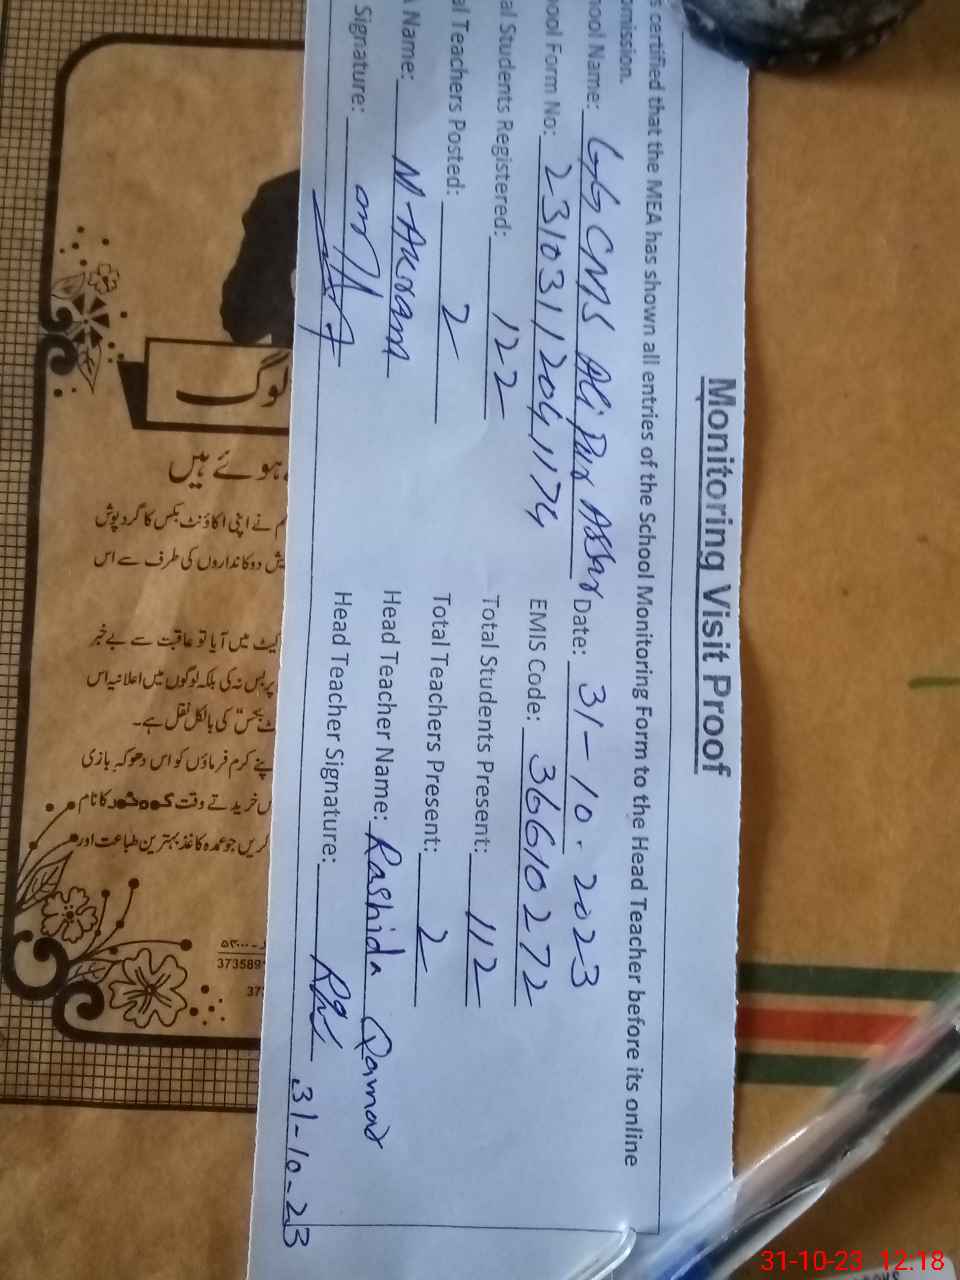 Monitoring Visit Proof
s certified that the MEA has shown all entries of the School Monitoring Form to the Head Teacher before its online
omission.
hool Name: GGCMS Ali Pur Ashr Date: 31-10-2023
ool Form No: 23103112041174 EMIS Code: 36610272
al Students Registered: 122 Total Students Present: 112
al Teachers Posted: 2 Total Teachers Present: 2
A Name: M-Akram Head Teacher Name: Rashida Qamar
Signature: Head Teacher Signature:
31-10-23
لوگ
ہوئے ہیں
م نے اپنی اکاؤنٹ بکس کا گردپوش
یش دوکانداروں کی طرف سے اس
کیٹ میں آیا تو عاقبت سے بے خبر
پر بس نہ کی بلکہ لوگوں میں اعلانیہ اس
کی بالکل نقل ہے۔
پنے کرم فرماؤں کو اس دھوکہ بازی
س خریدتے وقت کا نام
کریں جو عمدہ کاغذ بہترین طباعت اور
373589
37
31-10-23 12:18